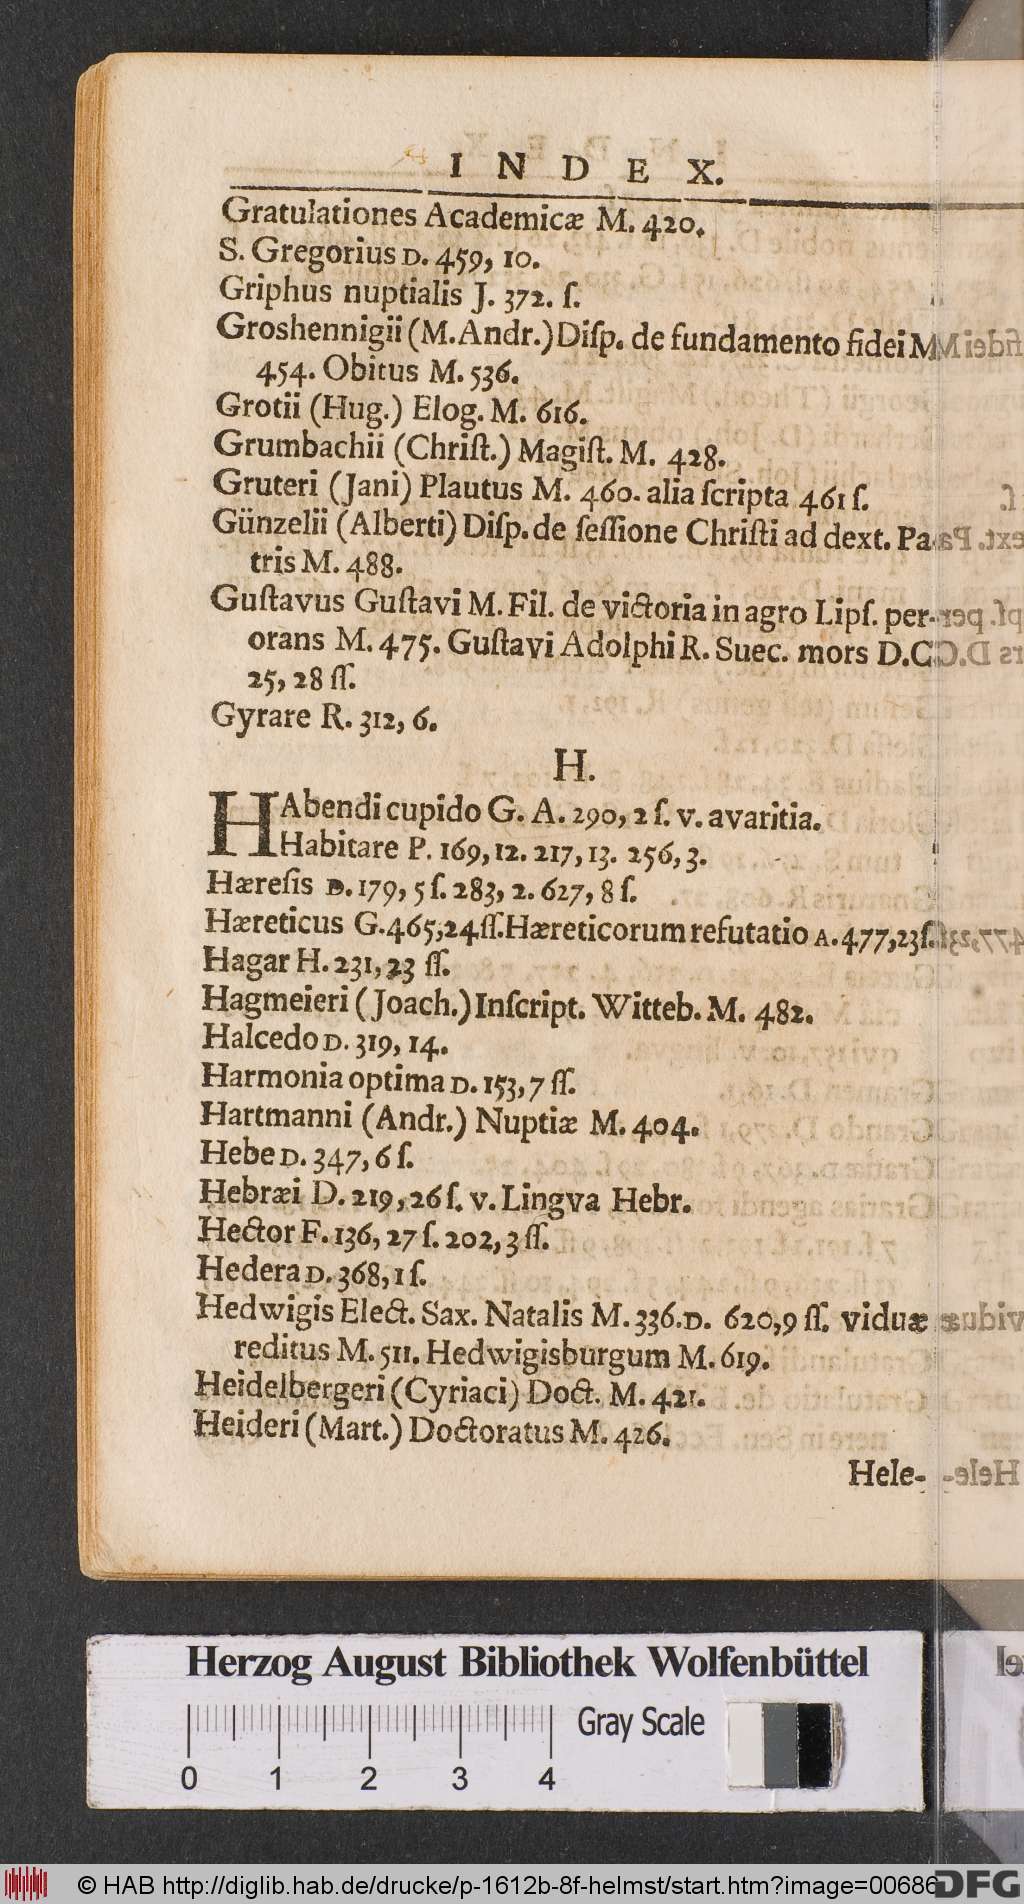 INDEX.
Gratulationes Academicæ M. 420.
S. Gregorius D. 459, 10.
Griphus nuptialis J. 372. ſ.
Groshennigii (M. Andr.) Diſp. de fundamento fidei M.
454. Obitus M. 536.
Grotii (Hug.) Elog. M. 616.
Grumbachii (Chriſt.) Magiſt. M. 428.
Gruteri (Jani) Plautus M. 460. alia ſcripta 461 ſ.
Günzelii (Alberti) Diſp. de ſeſſione Chriſti ad dext. Pa-
tris M. 488.
Guſtavus Guſtavi M. Fil. de victoria in agro Lipſ. per-
orans M. 475. Guſtavi Adolphi R. Suec. mors D. C.
25, 28 ſſ.
Gyrare R. 312, 6.
H.
HAbendi cupido G. A. 290, 2 ſ. v. avaritia.
Habitare P. 169, 12. 217, 13. 256, 3.
Hæreſis D. 179, 5 ſ. 283, 2. 627, 8 ſ.
Hæreticus G. 465, 24 ſſ. Hæreticorum refutatio A. 477, 23 ſ.
Hagar H. 231, 23 ſſ.
Hagmeieri (Joach.) Inſcript. Witteb. M. 482.
Halcedo D. 319, 14.
Harmonia optima D. 153, 7 ſſ.
Hartmanni (Andr.) Nuptiæ M. 404.
Hebe D. 347, 6 ſ.
Hebræi D. 219, 26 ſ. v. Lingva Hebr.
Hector F. 136, 27 ſ. 202, 3 ſſ.
Hedera D. 368, 1 ſ.
Hedwigis Elect. Sax. Natalis M. 336. D. 620, 9 ſſ. viduæ
reditus M. 511. Hedwigisburgum M. 619.
Heidelbergeri (Cyriaci) Doct. M. 421.
Heideri (Mart.) Doctoratus M. 426.
Hele-
Herzog August Bibliothek Wolfenbüttel
Gray Scale
0 1 2 3 4
© HAB http://diglib.hab.de/drucke/p-1612b-8f-helmst/start.htm?image=00686
DFG